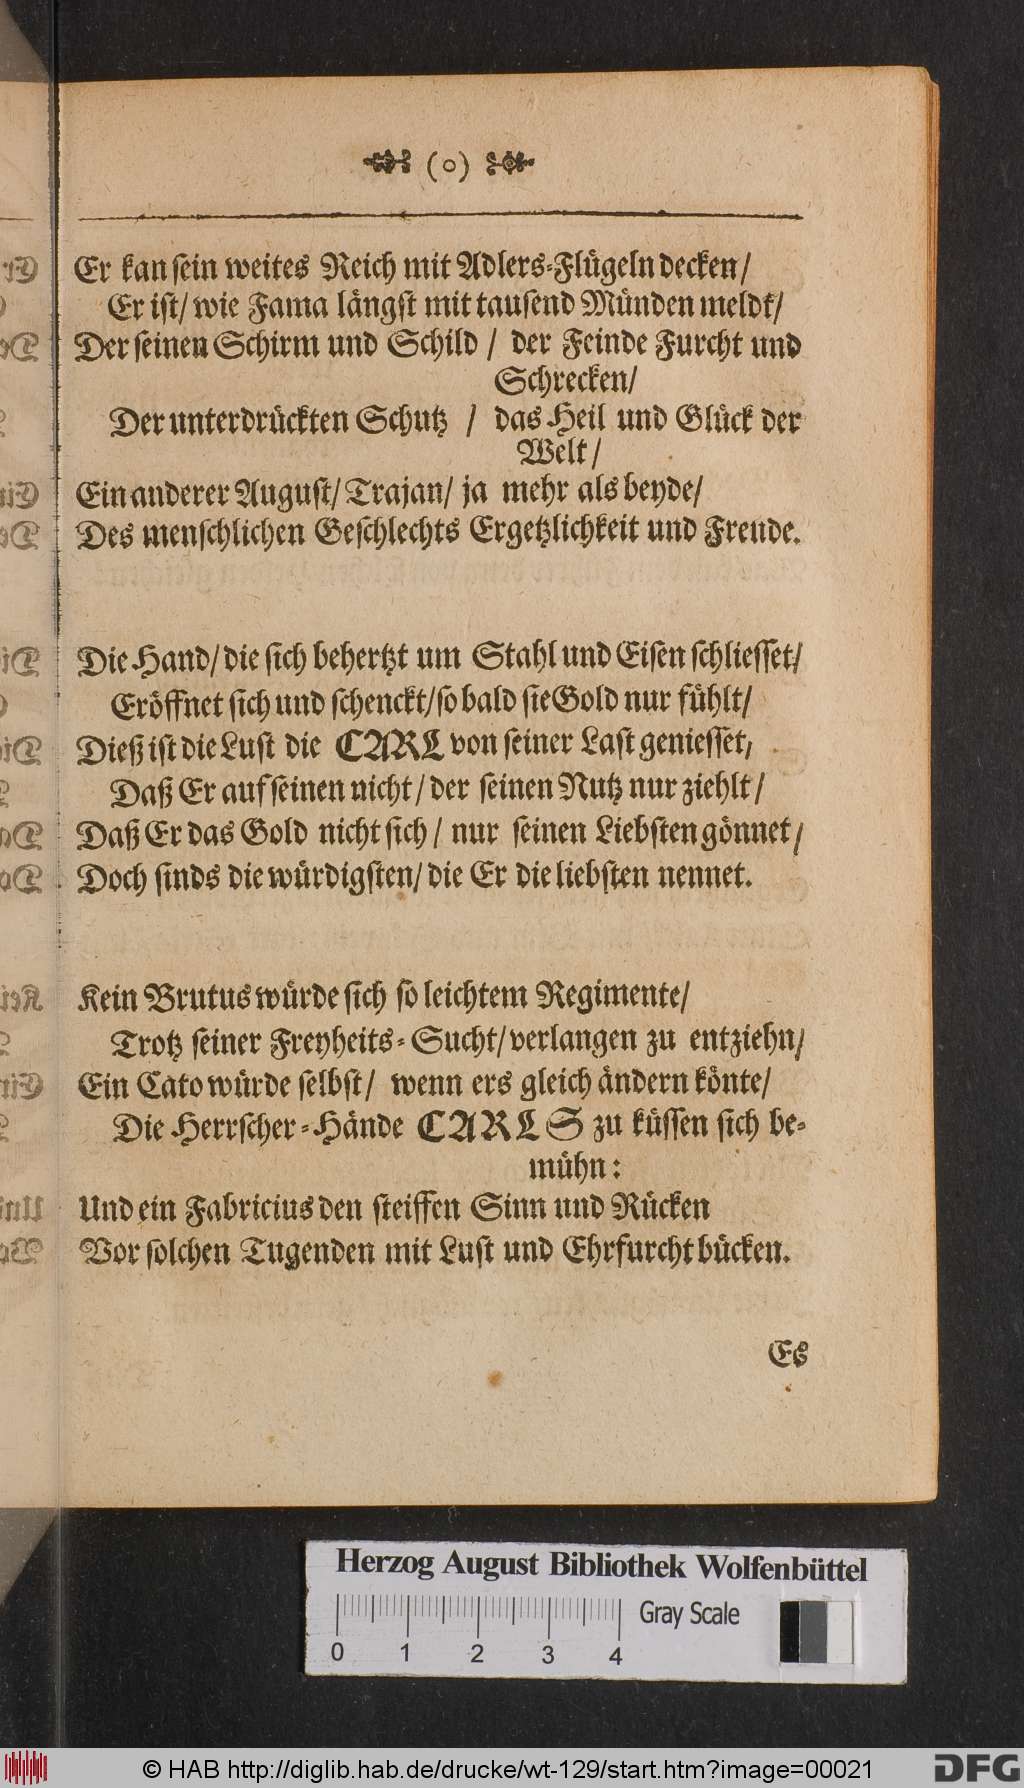 (o)
Er kan sein weites Reich mit Adlers-Flügeln decken/
Er ist/ wie Fama längst mit tausend Münden meldt/
Der seinen Schirm und Schild / der Feinde Furcht und
Schrecken/
Der unterdrückten Schutz / das Heil und Glück der
Welt/
Ein anderer August/ Trajan/ ja mehr als beyde/
Des menschlichen Geschlechts Ergetzlichkeit und Freude.
Die Hand/ die sich behertzt um Stahl und Eisen schliesset/
Eröffnet sich und schenckt/ so bald sie Gold nur fühlt/
Dieß ist die Lust die CARL von seiner Last geniesset,
Daß Er auf seinen nicht/ der seinen Nutz nur ziehlt/
Daß Er das Gold nicht sich/ nur seinen Liebsten gönnet/
Doch sinds die würdigsten/ die Er die liebsten nennet.
Kein Brutus würde sich so leichtem Regimente/
Trotz seiner Freyheits-Sucht/ verlangen zu entziehn/
Ein Cato würde selbst/ wenn ers gleich ändern könte/
Die Herrscher-Hände CARLS zu küssen sich be-
mühn:
Und ein Fabricius den steiffen Sinn und Rücken
Vor solchen Tugenden mit Lust und Ehrfurcht bücken.
Es
Herzog August Bibliothek Wolfenbüttel
Gray Scale
0 1 2 3 4
© HAB http://diglib.hab.de/drucke/wt-129/start.htm?image=00021
DFG